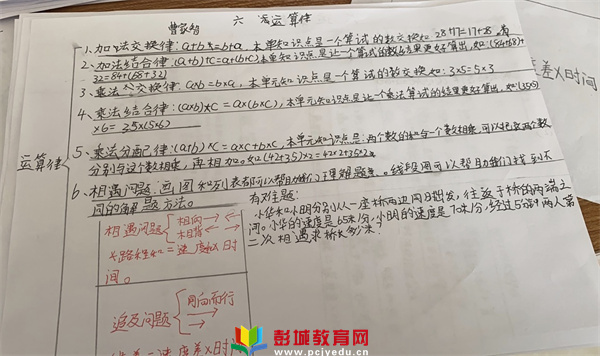 六 运算律
运算律
1、加法交换律:a+b=b+a,本单知识点是一个算试的数交换如28+17=17+28。
2、加法结合律:(a+b)+c=a+(b+c)本单知识点是让一个算式的结果更好算出,如:(84+68)+
32=84+(68+32)
3、乘法交换律:a×b=b×a,本单元知识点是一个算试的数交换,如:3×5=5×3
4、乘法结合律:(a×b)×c=a×(b×c),本单元知识点是让个乘法算试的结果更好算出,如:(35×5)
×6=35×(5×6)
5、乘法分配律:(a+b)×c=a×c+b×c,本单元知识点是:两个数的和合一个数相乘,可以把这两个数
分别与这个数相乘,再相加。如(42+35)×2=42×2+35×2。
6、相遇问题:画图和列表都可以帮助我们理解题意。线段图可以帮助我们找到不
同的解题方法。
相遇问题
相向
相背
路程和=速度和×时
间。
追及问题
同向而行
差×时间
有对住题:
小华和小明分别从一座桥两边同时出发,往返于桥的两端之
间。小华的速度是65米/分,小明的速度是70米/分,经过5分钟两人第
二次相遇求桥长多少米?
彭城教育网
www.pcjyedu.cn